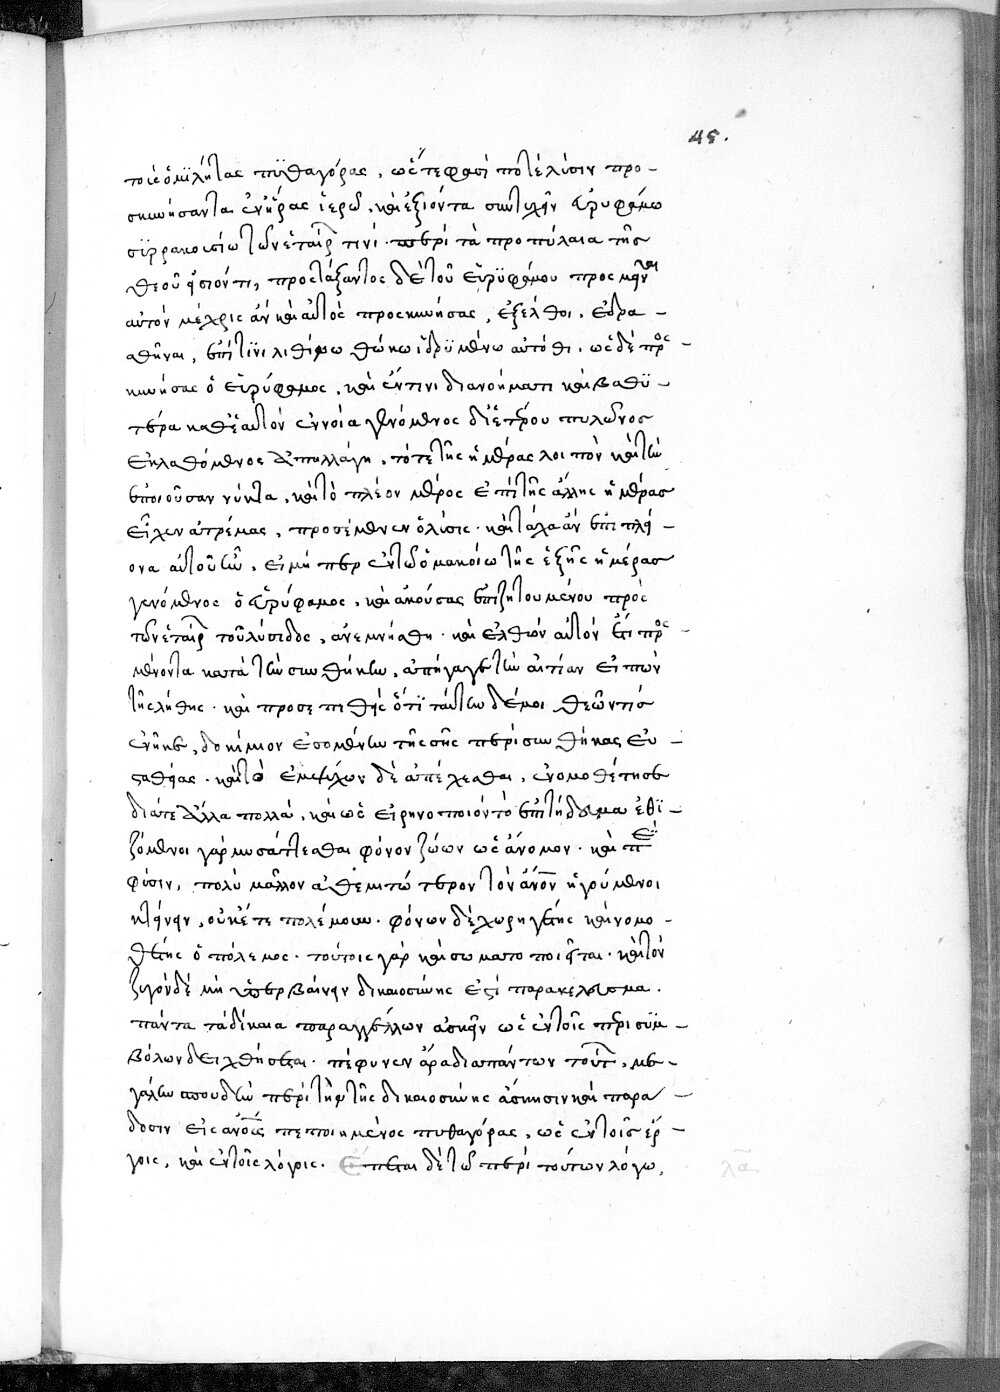 45.
τοῖς ὁμιλήτας πυθαγόρας, ὥστέ φασί ποτε λύσιν προ-
σκυνήσαντα ἐν ἥρας ἱερῶ, καὶ ἐξιόντα συντυχεῖν εὐρυφάμω
συρρακουσίω τῶν ἑταίρ τινὶ περὶ τὰ προπύλαια τῆς
θεοῦ εἰσιόντι, προστάξαντος δὲ τοῦ εὐρυφάμου προσμεῖναι
αὐτὸν μέχρις ἂν καὶ αὐτὸς προσκυνήσας, ἐξέλθοι, ἑδρα-
σθῆναι, ἐπί τινι λιθίνω θώκω ἱδρυμένω αὐτόθι, ὡς δὲ προσ-
κυνήσας ὁ εὐρύφαμος, καὶ ἔν τινι διανοήματι καὶ βαθυ-
τέρα καθ' ἑαυτὸν ἐννοία γενόμενος δι' ἑτέρου πυλῶνος
ἐκλαθόμενος ἀπηλλάγη, τό τε τῆς ἡμέρας λοιπὸν καὶ τὴν
ἐπιοῦσαν νύκτα, καὶ τὸ πλέον μέρος ἔτι τῆς ἄλλης ἡμέρας
εἶχεν ἀτρέμας, προσέμενεν ὁ λύσις· καὶ τάχα ἂν ἐπὶ πλεί-
ονα αὐτοῦ ἦν, εἰ μή περ ἐν τῶ ὁμακοίω τῆς ἑξῆς ἡμέρας
γενόμενος ὁ εὐρύφαμος, καὶ ἀκούσας ἐπιζητουμένου πρὸς
τῶν ἑταίρ τοῦ λύσιδος, ἀνεμνήσθη· καὶ ἐλθὼν αὐτὸν ἔτι προσ-
μένοντα κατὰ τὴν συνθήκην, ἀπήγαγε τὴν αἰτίαν εἰπὼν
τῆς λήθης· καὶ προσεπιθεὶς ὅτι ταύτην δέ μοι θεῶν τις
ἐνῆκε, δοκίμιον ἐσομένην τῆς σῆς περὶ συνθήκας εὐ-
σταθείας· καὶ τὸ ἐμψύχων δὲ ἀπέχεσθαι, ἐνομοθέτησε
διά τε ἄλλα πολλὰ, καὶ ὡς εἰρηνοποιὸν τὸ ἐπιτήδευμα ἐθι-
ζόμενοι γὰρ μυσάττεσθαι φόνον ζώων ὡς ἄνομον· καὶ π
φύσιν, πολὺ μᾶλλον ἀθεμιτώτερον τὸν ἄνον ἡγούμενοι
κτείνειν, οὐκ έτ' ἐπολέμουν· φόνων δὲ χορηγέτης καὶ νομο-
θέτης ὁ πόλεμος· τούτοις γὰρ καὶ σωματοποιεῖται· καὶ τὸν
ζυγὸν δὲ μὴ ὑπερβαίνειν δικαιοσύνης ἐστὶ παρακέλευσμα.
πάντα τὰ δίκαια παραγγέλλων ἀσκεῖν ὡς ἐν τοῖς περὶ συμ-
βόλων δειχθήσεται· πέφηνεν ἄρα διὰ πάντων τούτ, με-
γάλην σπουδὴν περὶ τὴν τῆς δικαιοσύνης ἄσκησιν καὶ παρά-
δοσιν εἰς ἀνους πεποιημένος πυθαγόρας, ὡς ἐν τοῖς ἔρ-
γοις, καὶ ἐν τοῖς λόγοις. Ἕπεται δὲ τῶ περὶ τούτων λόγω,